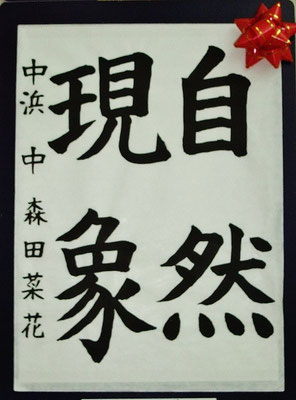 自然
現象
中浜中 森田菜花